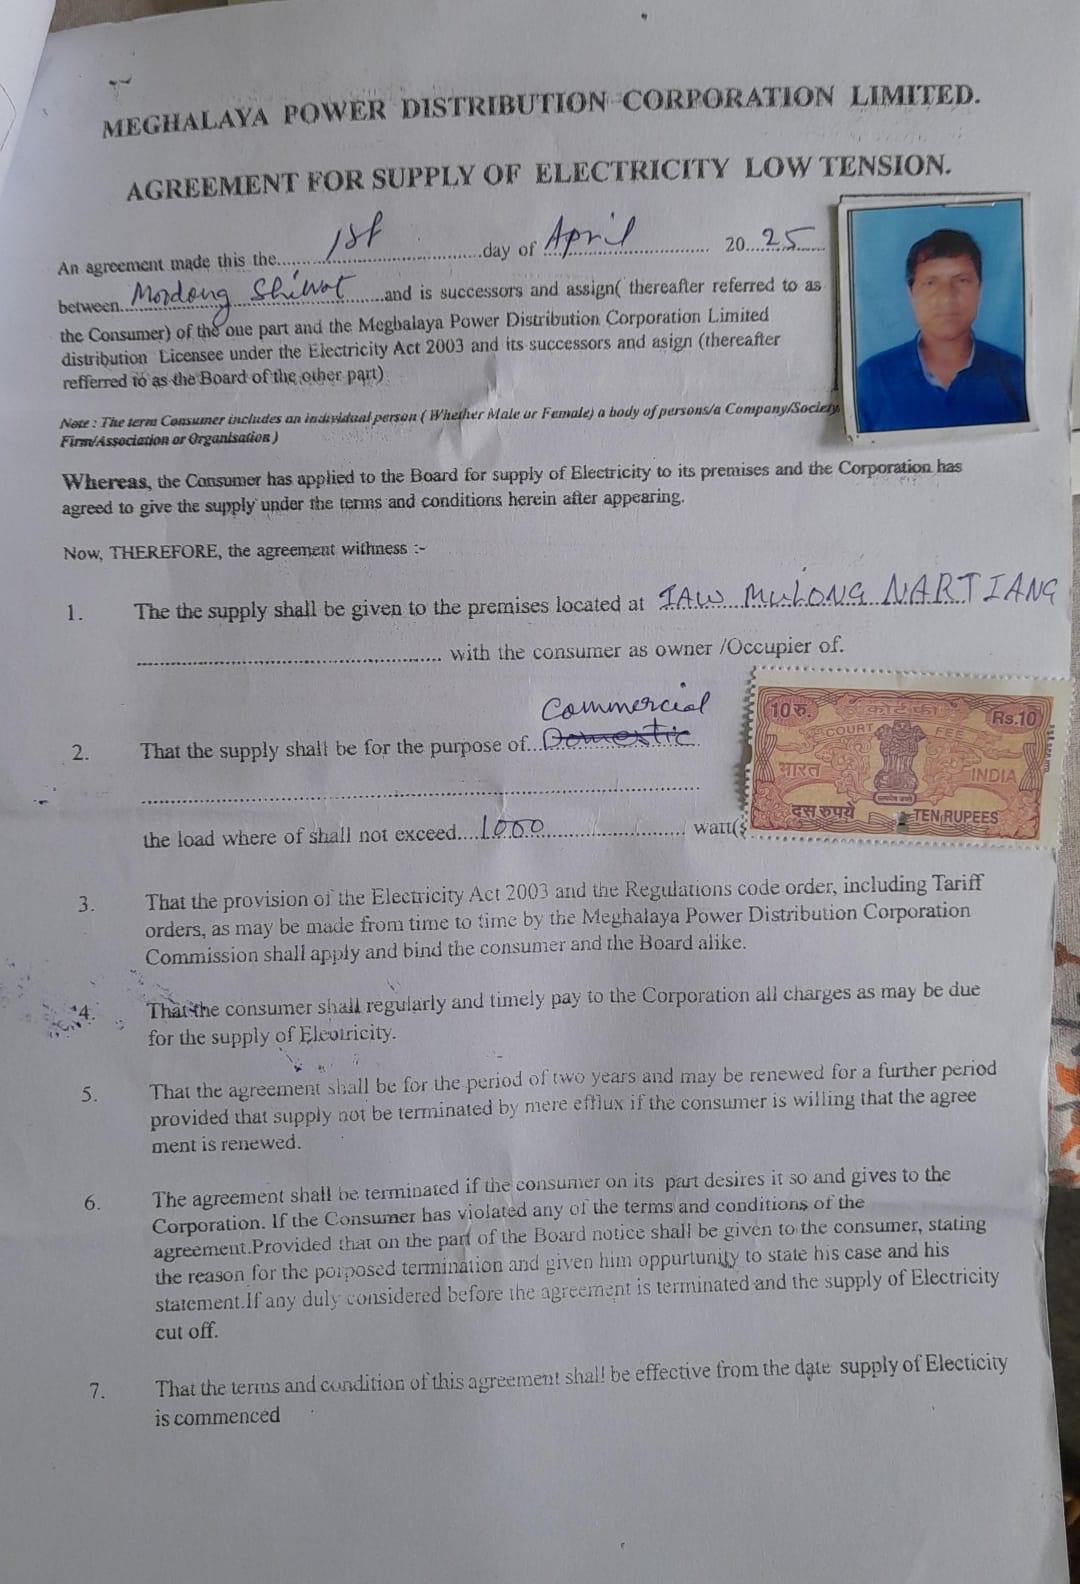 MEGHALAYA POWER DISTRIBUTION CORPORATION LIMITED.
AGREEMENT FOR SUPPLY OF ELECTRICITY LOW TENSION.
An agreement made this the.......1st..............................day of .April.............. 20..25......
between..Mordong Shiwat......and is successors and assign( thereafter referred to as
the Consumer) of the one part and the Meghalaya Power Distribution Corporation Limited
distribution Licensee under the Electricity Act 2003 and its successors and asign (thereafter
refferred to as the Board of the other part)
Note : The term Consumer includes an individual person ( Whether Male or Female) a body of persons/a Company/Society
Firm/Association or Organisation )
Whereas, the Consumer has applied to the Board for supply of Electricity to its premises and the Corporation has
agreed to give the supply under the terms and conditions herein after appearing.
Now, THEREFORE, the agreement withness :-
1. The the supply shall be given to the premises located at IAW MULONG NARTIANG
.................................................. with the consumer as owner /Occupier of.
Commercial
2. That the supply shall be for the purpose of..Domestic.
the load where of shall not exceed....1000........................ watt(s
10 रु. कोर्ट फी Rs.10
COURT FEE
भारत INDIA
सत्यमेव जयते
दस रुपये TEN RUPEES
3. That the provision of the Electricity Act 2003 and the Regulations code order, including Tariff
orders, as may be made from time to time by the Meghalaya Power Distribution Corporation
Commission shall apply and bind the consumer and the Board alike.
4. That the consumer shall regularly and timely pay to the Corporation all charges as may be due
for the supply of Electricity.
5. That the agreement shall be for the period of two years and may be renewed for a further period
provided that supply not be terminated by mere efflux if the consumer is willing that the agree
ment is renewed.
6. The agreement shall be terminated if the consumer on its part desires it so and gives to the
Corporation. If the Consumer has violated any of the terms and conditions of the
agreement.Provided that on the part of the Board notice shall be given to the consumer, stating
the reason for the porposed termination and given him oppurtunity to state his case and his
statement.If any duly considered before the agreement is terminated and the supply of Electricity
cut off.
7. That the terms and condition of this agreement shall be effective from the date supply of Electicity
is commenced